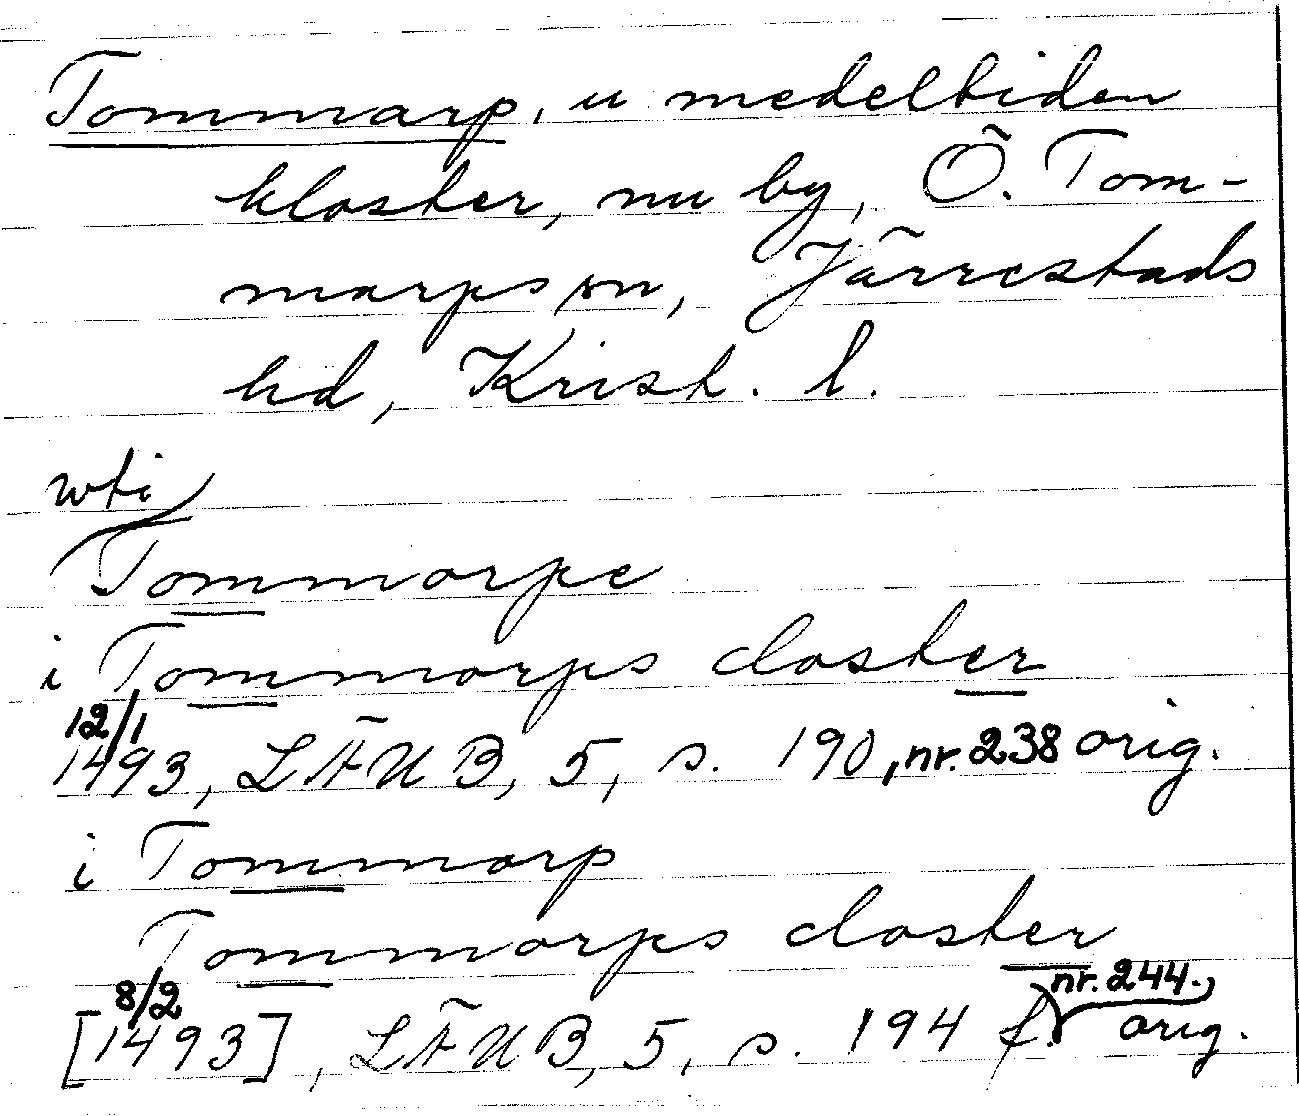 Tommarp, u medeltiden
kloster, nu by, Ö. Tom-
marps sn, Järrestads
hd, Krist. l.
wti
Tommorpe
i Tommorps closter
12/1
1493, LÄUB, 5, s. 190, nr. 238 orig.
i Tommorp
Tommorps closter
8/2 nr. 244.,
[1493], LÄUB, 5, s. 194 f. orig.